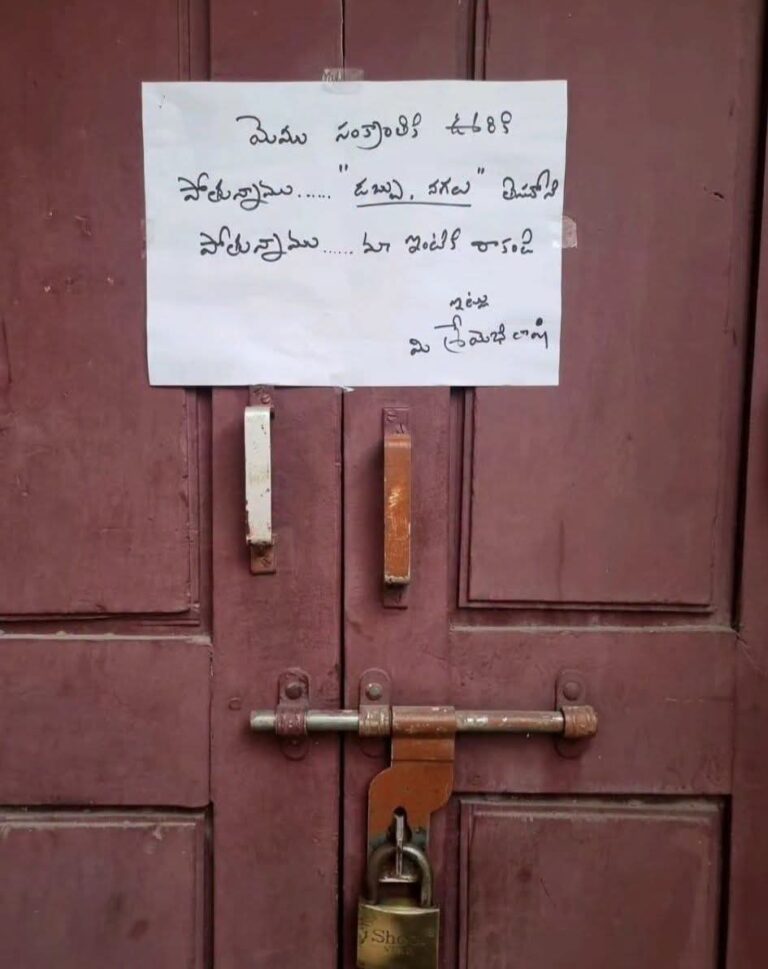 మెము సంక్రాంతికి ఊరికి
పోతున్నాము...... "డబ్బు, నగలు" తీసుకొని
పోతున్నాము...... మా ఇంటికి రాకండి
ఇట్లు
మీ